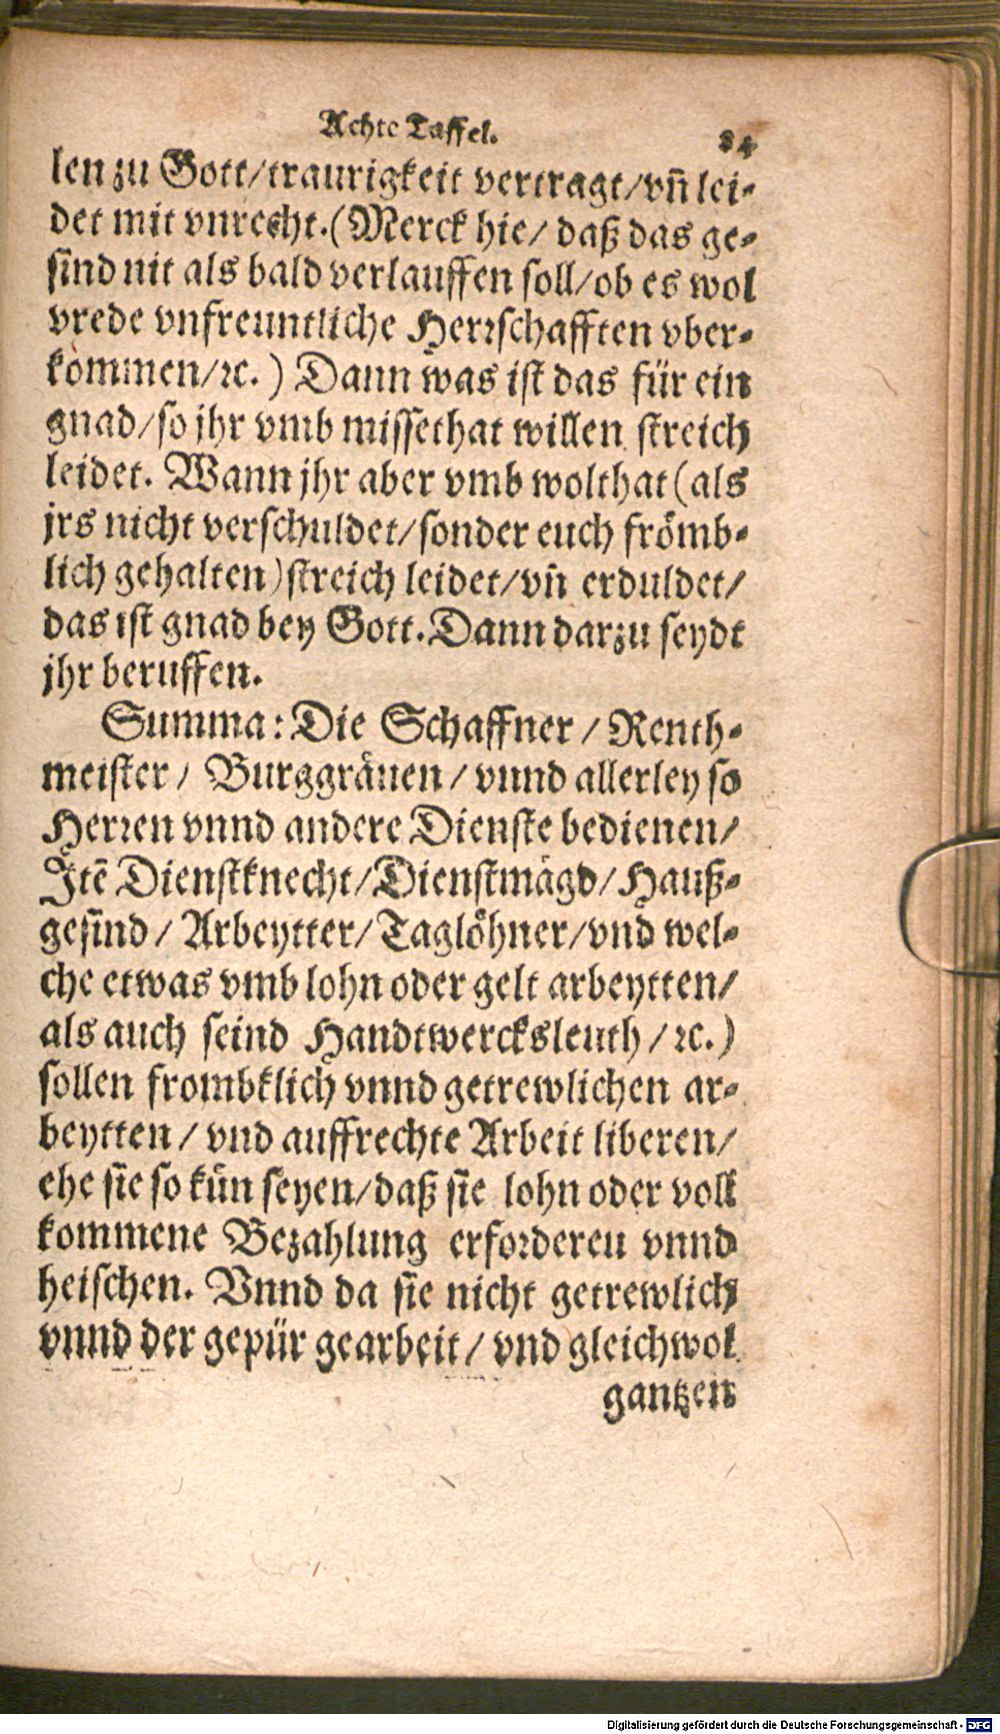 Achte Taffel. 84
len zu Gott/traurigkeit vertragt/vñ lei-
det mit vnrecht.(Merck hie/ daß das ge-
sind nit als bald verlauffen soll/ob es wol
vrede vnfreuntliche Herrschafften vber-
kommen/ꝛc.) Dann was ist das für ein
gnad/so jhr vmb missethat willen streich
leidet. Wann jhr aber vmb wolthat (als
jrs nicht verschuldet/sonder euch frömb-
lich gehalten)streich leidet/vñ erduldet/
das ist gnad bey Gott.Dann darzu seydt
jhr beruffen.
Summa: Die Schaffner / Renth-
meister / Burggräuen / vnnd allerley so
Herren vnnd andere Dienste bedienen/
Itē Dienstknecht/Dienstmägd/Hauß-
gesind/ Arbeytter/Taglöhner/vnd wel-
che etwas vmb lohn oder gelt arbeytten/
als auch seind Handtwercksleuth /ꝛc.)
sollen frombklich vnnd getrewlichen ar-
beytten / vnd auffrechte Arbeit liberen/
ehe sie so kün seyen/daß sie lohn oder voll
kommene Bezahlung erfordereu vnnd
heischen. Vnnd da sie nicht getrewlich
vnnd der gepür gearbeit/ vnd gleichwol
gantzen
Digitalisierung gefördert durch die Deutsche Forschungsgemeinschaft - DFG